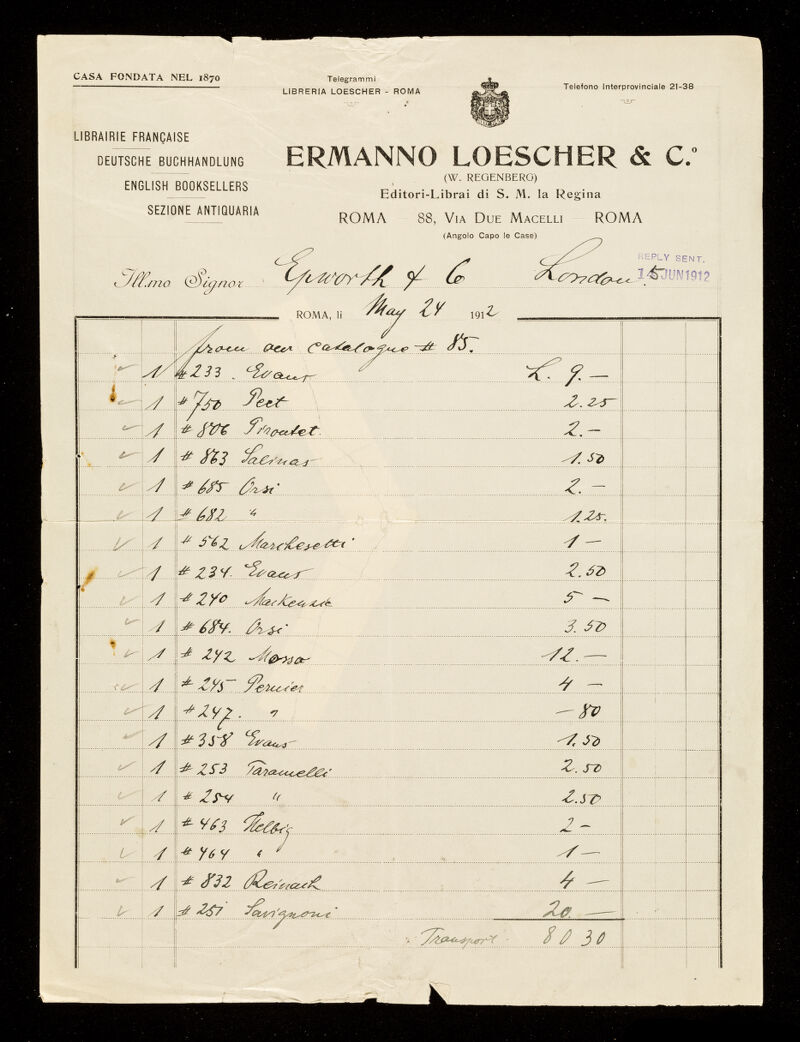 CASA FONDATA NEL 1870
Telegrammi
LIBRERIA LOESCHER - ROMA
Telefono Interprovinciale 21-38
LIBRAIRIE FRANÇAISE
DEUTSCHE BUCHHANDLUNG
ENGLISH BOOKSELLERS
SEZIONE ANTIQUARIA
ERMANNO LOESCHER & C.º
(W. REGENBERG)
Editori-Librai di S. M. la Regina
ROMA — 88, VIA DUE MACELLI — ROMA
(Angolo Capo le Case)
REPLY SENT.
15 JUN 1912
Ill.mo Signor Epworth & Co London.
ROMA, li May 24 1912
from our catalogue # 85.
1 #233. Evans L. 9.—
1 #750 Peet 2.25
1 #806 Piroutet. 2.—
1 #863 Salinas 1.50
1 #685 Orsi 2.—
1 #682 " 1.25.
1 #562 Marchesetti 1 —
1 #234. Evans 2.50
1 #240 Mackenzie 5 —
1 #684. Orsi 3.50
1 #242 Mosso 12.—
1 #245 Pernier 4 —
1 #247. " —80
1 #358 Evans 1.50
1 #253 Taramelli 2.50
1 #254 " 2.50
1 #463 Helbig 2 —
1 #464 " 1 —
1 #832 Reinach 4 —
1 #251 Savignoni 20 —
Transport. 80 30